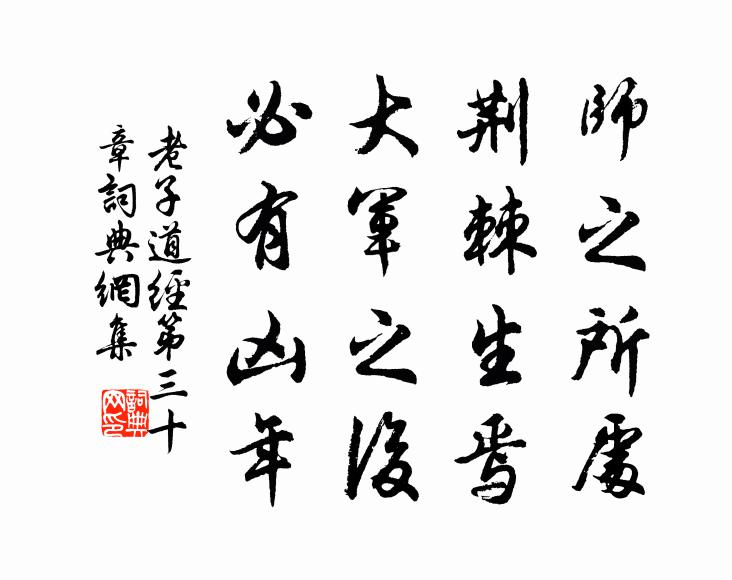 師之所處
荆棘生焉
大軍之後
必有凶年
老子道經第三十
章詞典網集
詞典
网印